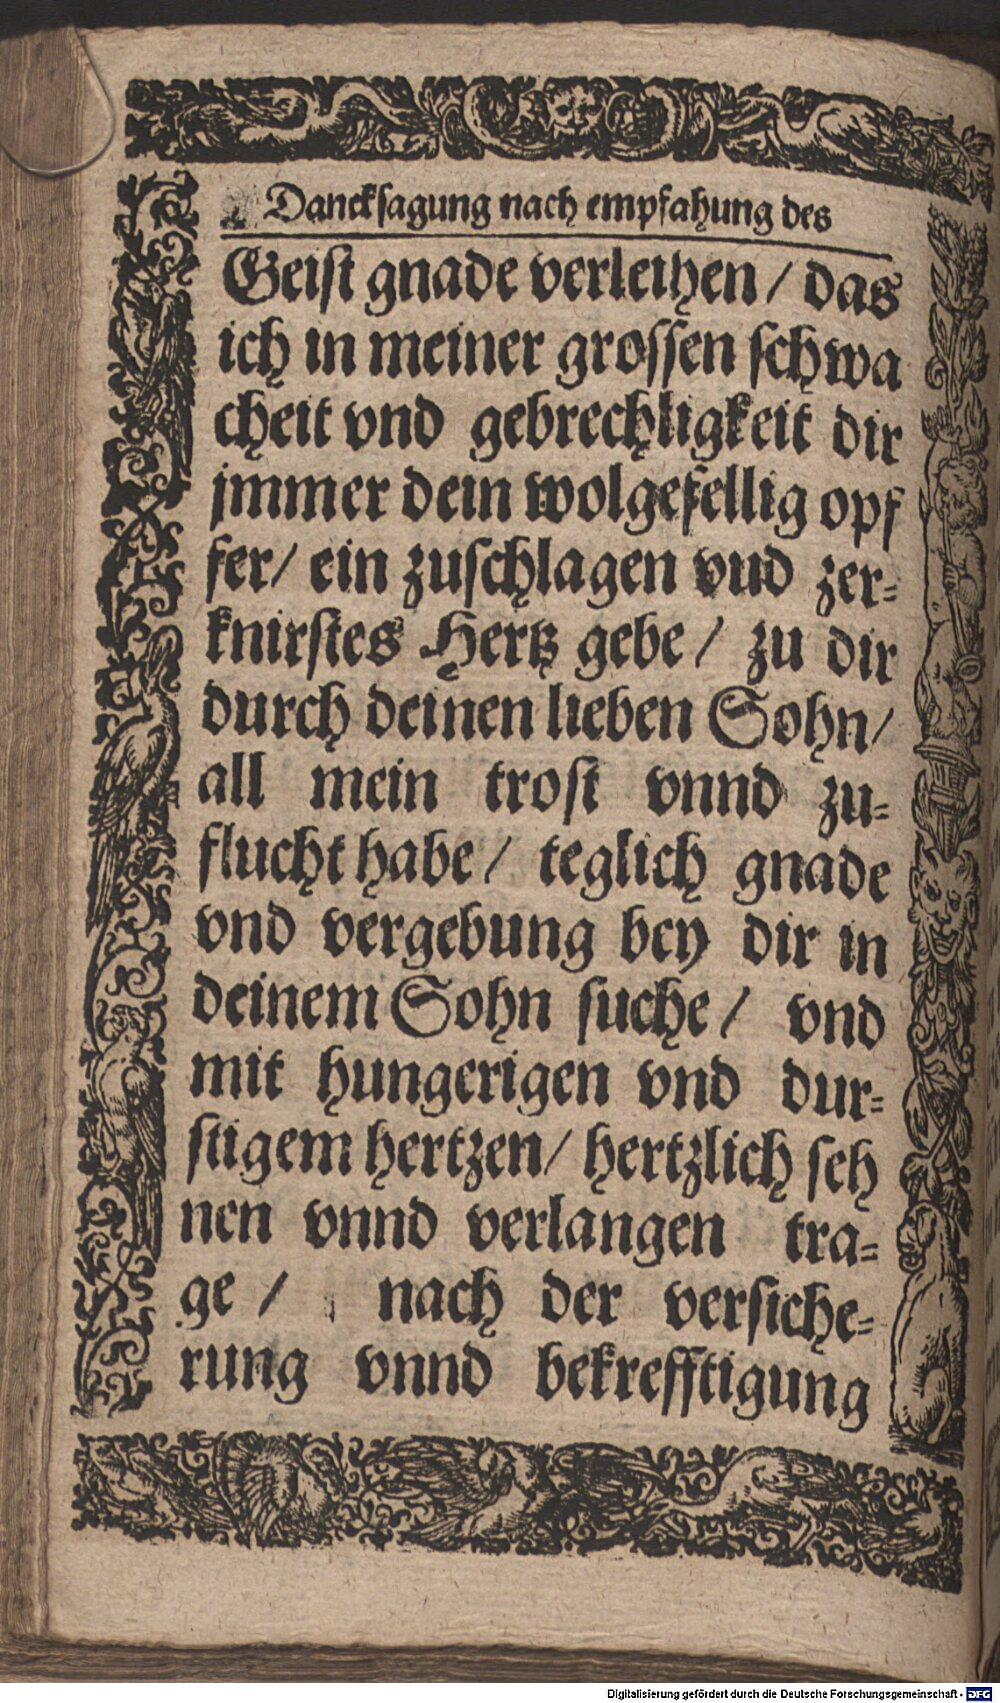 Dancksagung nach empfahung des
Geist gnade verleihen / das
ich in meiner grossen schwa
cheit vnd gebrechligkeit dir
jmmer dein wolgefellig opf
fer / ein zuschlagen vud zer-
knirstes Hertz gebe / zu dir
durch deinen lieben Sohn /
all mein trost vnnd zu-
flucht habe / teglich gnade
vnd vergebung bey dir in
deinem Sohn suche / vnd
mit hungerigen vnd dur-
stigem hertzen / hertzlich seh
nen vnnd verlangen tra-
ge / nach der versiche-
rung vnnd bekrefftigung
Digitalisierung gefördert durch die Deutsche Forschungsgemeinschaft - DFG